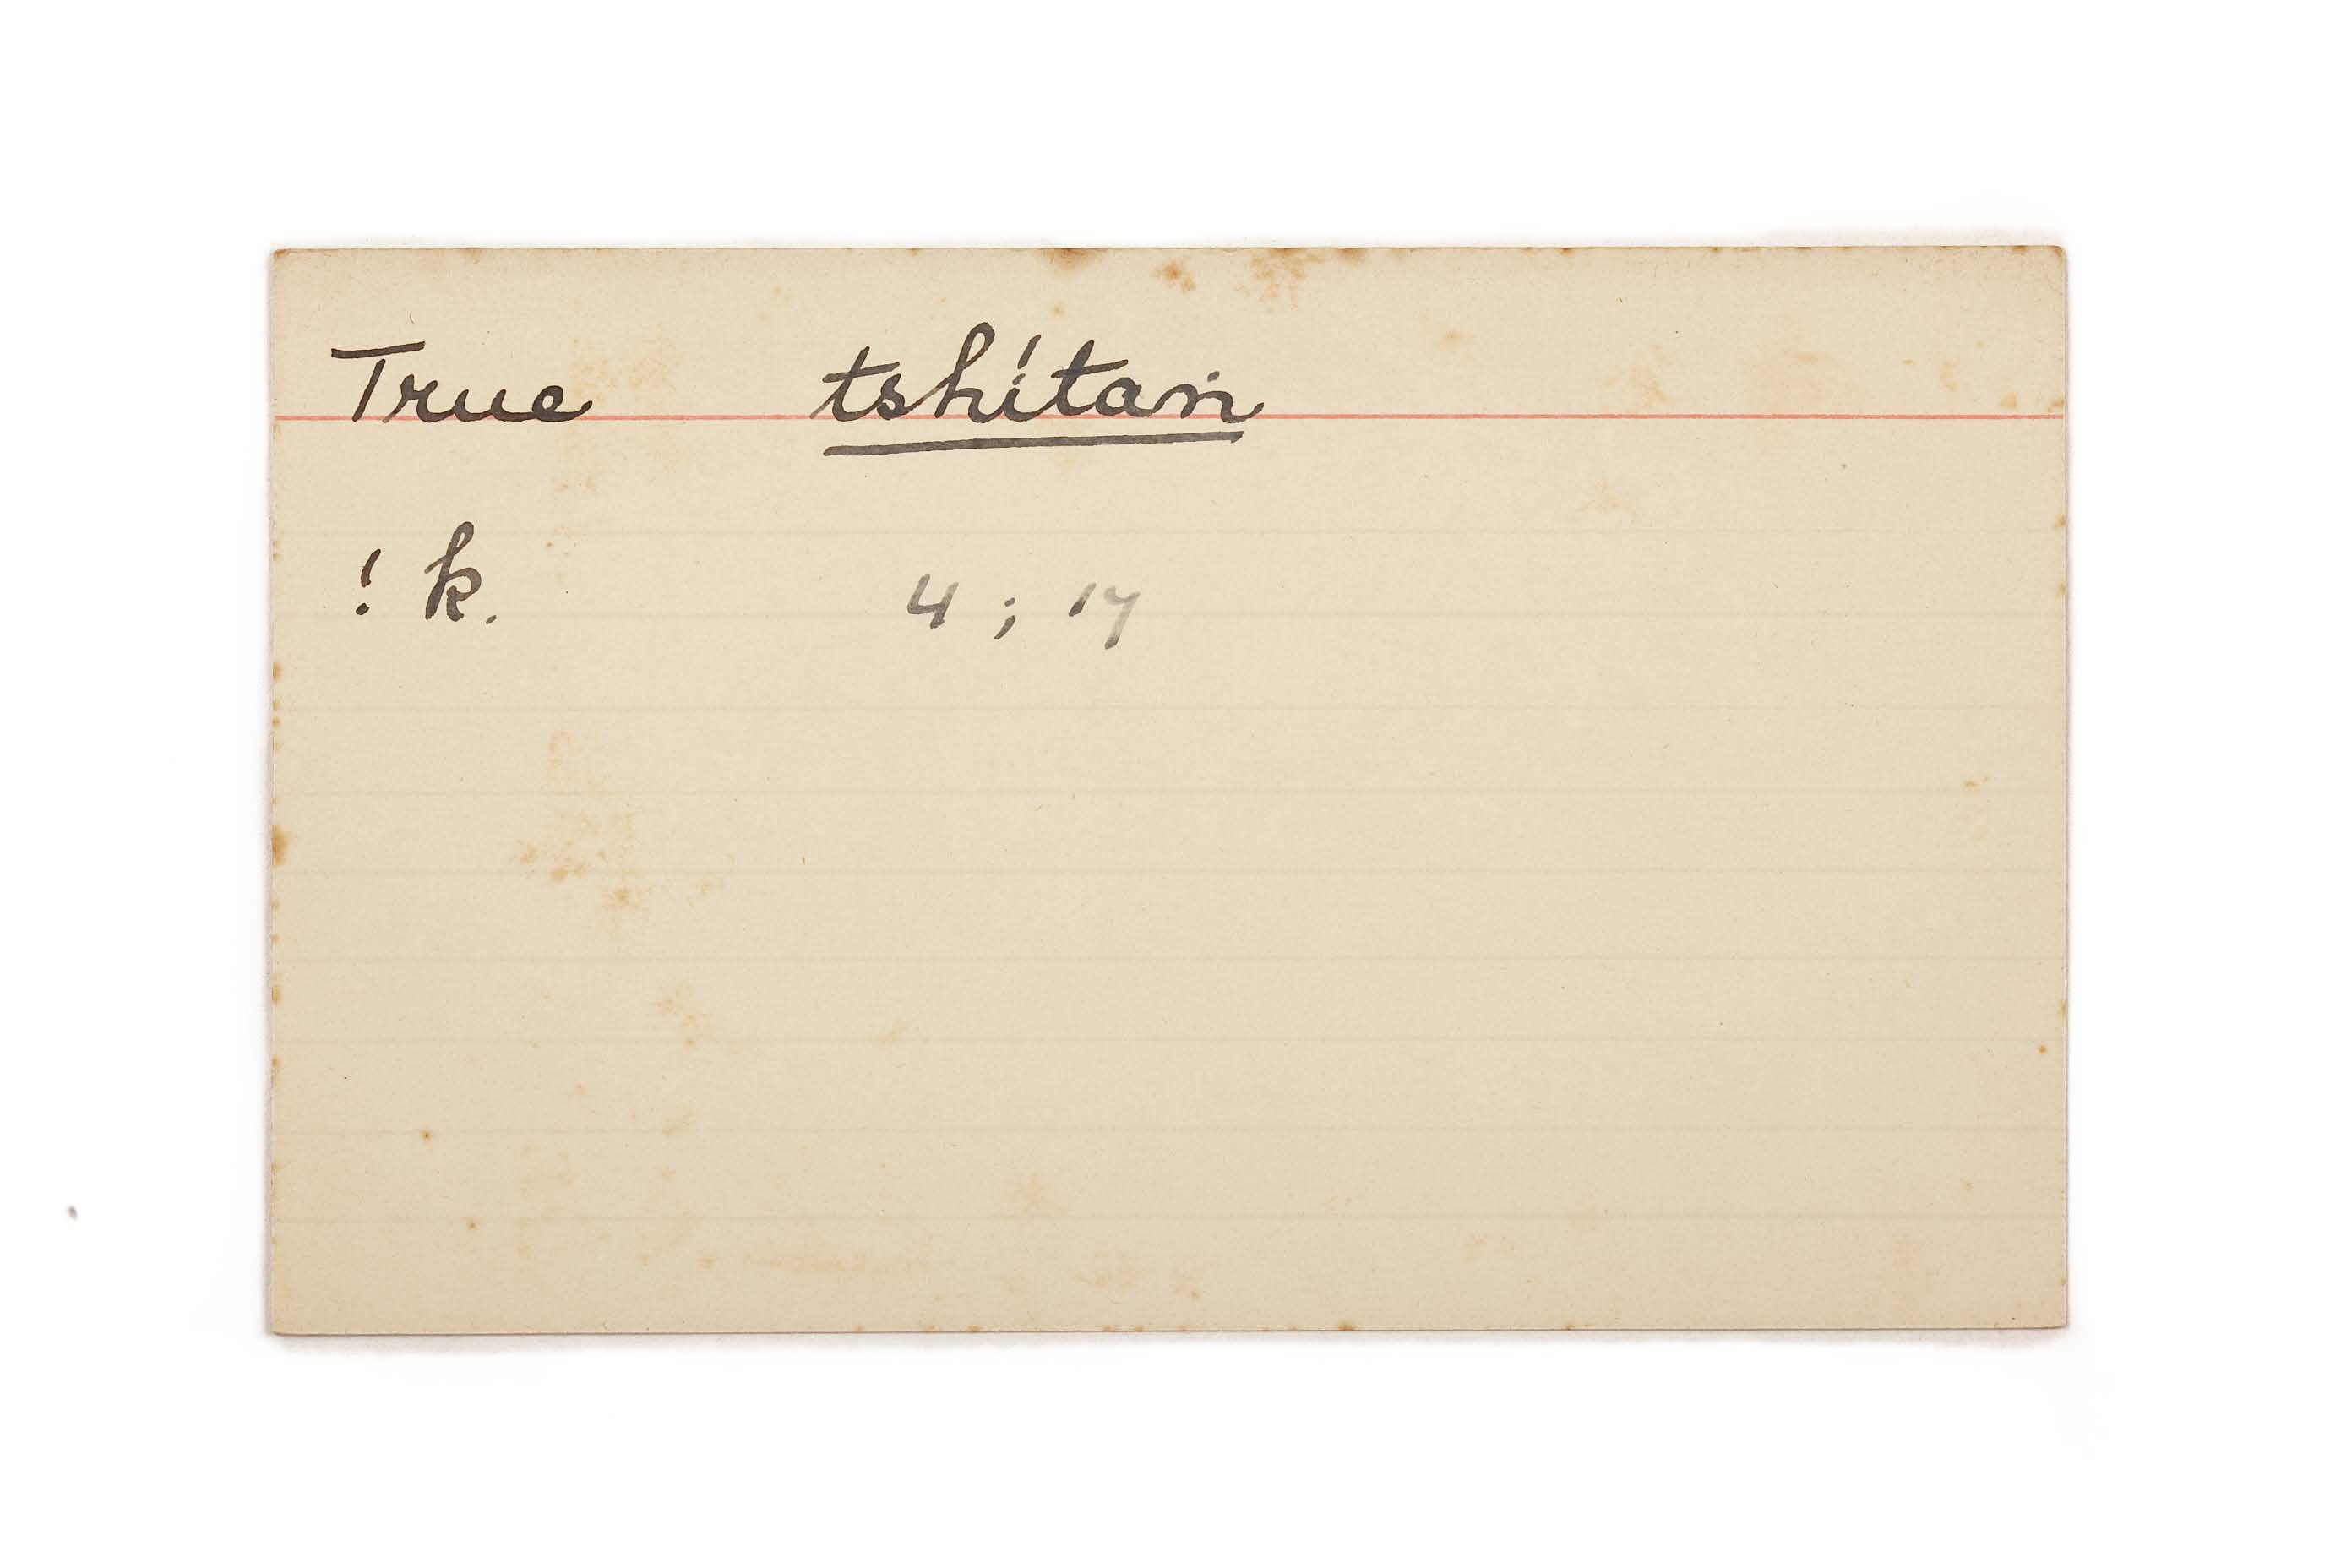 True tshítaṅ
! k. 4 ; 17